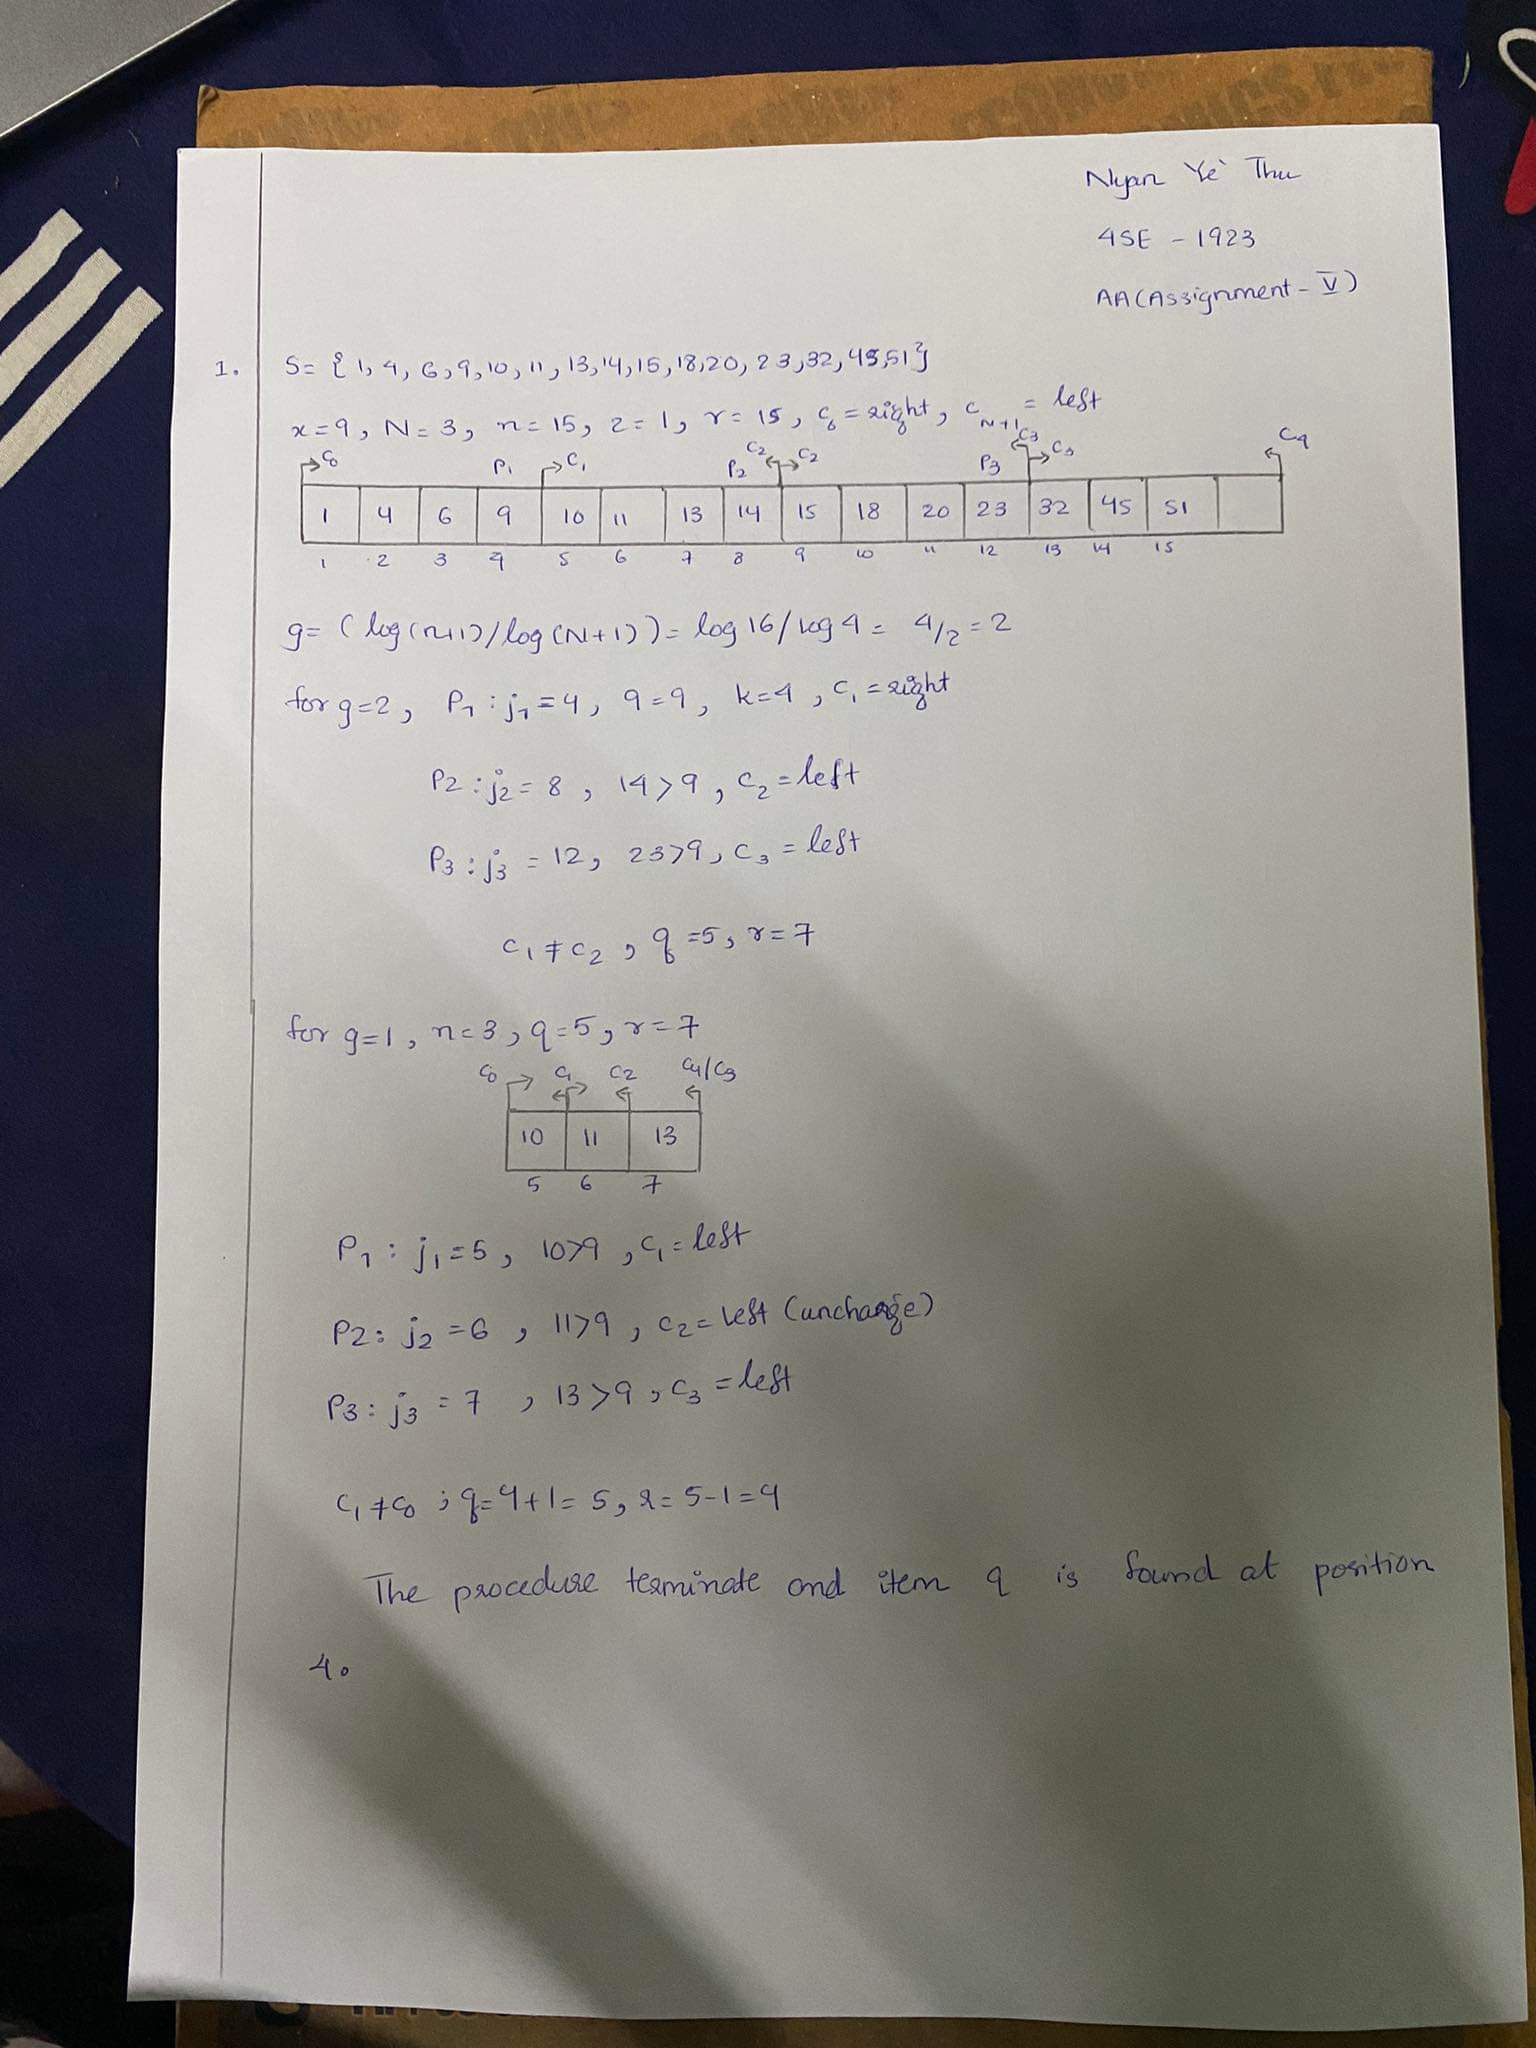 Nyan Ye` Thu
4SE - 1923
AA(Assignment - V)
1. S= {1, 4, 6, 9, 10, 11, 13, 14, 15, 18, 20, 23, 32, 45, 51}
x=9, N=3, n=15, 2=1, r=15, C0=right, C N+1 = left
C0 P1 C1 P2 C2 C2 P3 C3 C3 C4
1 4 6 9 10 11 13 14 15 18 20 23 32 45 51
1 2 3 4 5 6 7 8 9 10 11 12 13 14 15
g= (log(n+1)/log(N+1))= log16/log4= 4/2=2
for g=2, P1: j1=4, 9=9, k=4, C1=right
P2: j2=8, 14>9, C2=left
P3: j3=12, 23>9, C3=left
C1≠C2, q=5, r=7
for g=1, n=3, q=5, r=7
C0 C1 C2 C4/C3
10 11 13
5 6 7
P1: j1=5, 10>9, C1=left
P2: j2=6, 11>9, C2=left (unchange)
P3: j3=7, 13>9, C3=left
C1≠C0; q=4+1=5, r=5-1=4
The procedure terminate and item 9 is found at position
4.